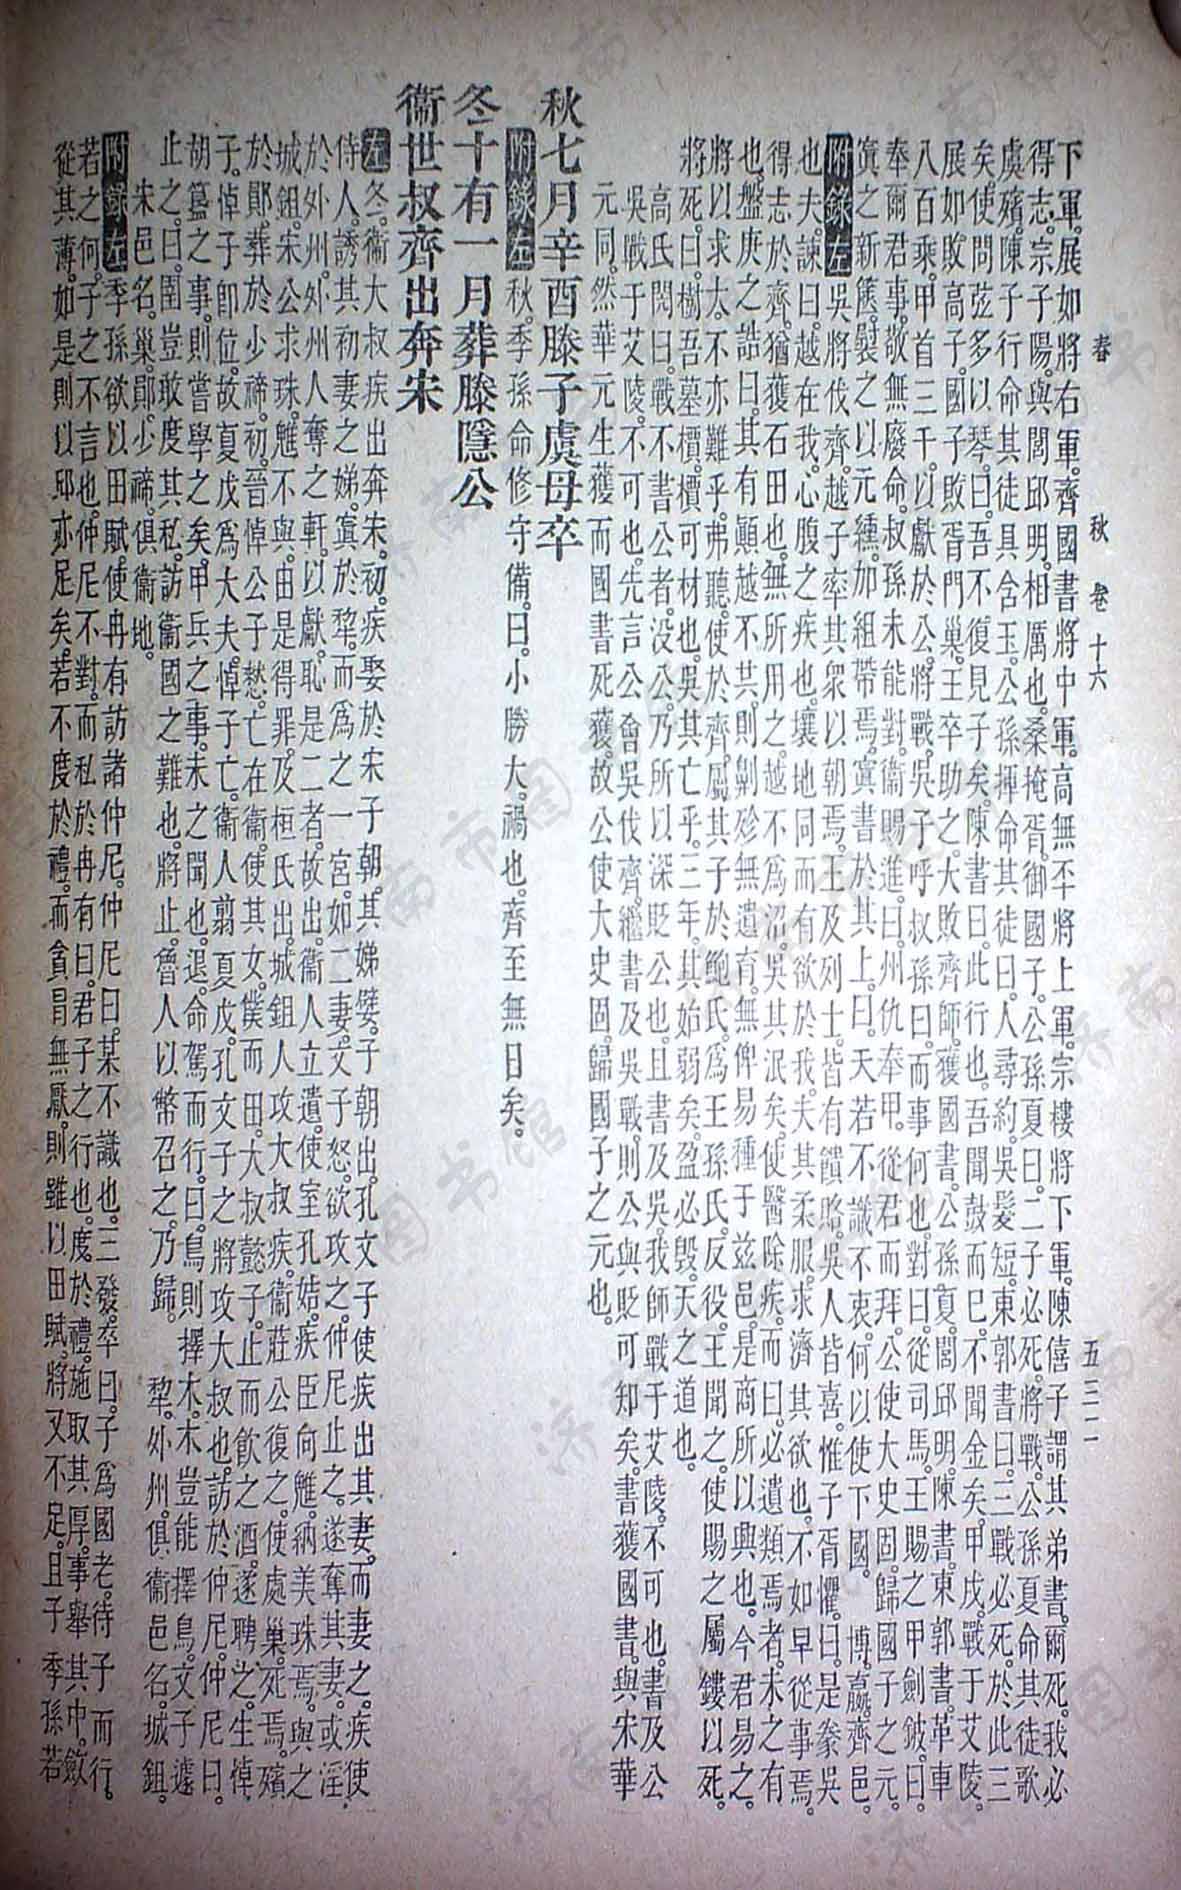 春　秋　卷十六　五三二
下軍。展如將右軍。齊國書將中軍。高無㔻將上軍。宗樓將下軍。陳僖子謂其弟書。爾死。我必
得志。宗子陽。與閭邱明。相厲也。桑掩胥。御國子。公孫夏曰。二子必死。將戰。公孫夏命其徒歌
虞殯。陳子行命其徒具含玉。公孫揮命其徒曰。人尋約。吳髮短。東郭書曰。三戰必死。於此三
矣。使問弦多以琴。曰。吾不復見子矣。陳書曰。此行也。吾聞鼓而已。不聞金矣。甲戌。戰于艾陵。
展如敗高子。國子敗胥門巢。王卒助之。大敗齊師。獲國書。公孫夏。閭邱明。陳書。東郭書。革車
八百乘。甲首三千。以獻於公。將戰。吳子呼叔孫曰。而事何也。對曰。從司馬。王賜之甲劍鈹。曰。
奉爾君事。敬無廢命。叔孫未能對。衞賜進。曰。州仇奉甲。從君而拜。公使大史固。歸國子之元。
寘之新篋。褽之以元纁。加組帶焉。寘書於其上。曰。天若不識不衷。何以使下國。　博。嬴。齊邑。
附錄左 吳將伐齊。越子率其衆以朝焉。王及列士。皆有饋賂。吳人皆喜。惟子胥懼。曰。是豢吳
也夫。諫曰。越在我。心腹之疾也。壤地同而有欲於我。夫其柔服。求濟其欲也。不如早從事焉。
得志於齊。猶獲石田也。無所用之。越不爲沼。吳其泯矣。使醫除疾。而曰。必遺類焉者。未之有
也。盤庚之誥曰。其有顚越不共。則劓殄無遺育。無俾易種于茲邑。是商所以興也。今君易之。
將以求大。不亦難乎。弗聽。使於齊。屬其子於鮑氏。爲王孫氏。反役。王聞之。使賜之屬鏤以死。
將死。曰。樹吾墓檟。檟可材也。吳其亡乎。三年。其始弱矣。盈必毀。天之道也。
高氏閌曰。戰不書公者。没公。乃所以深貶公也。且書及吳。我師戰于艾陵。不可也。書及公
吳戰于艾陵。不可也。先言公會吳伐齊。繼書及吳戰。則公與貶可知矣。書獲國書。與宋華
元同。然華元生獲而國書死獲。故公使大史固。歸國子之元也。
秋七月辛酉滕子虞母卒
附錄左 秋。季孫命修守備。曰。小勝大。禍也。齊至無日矣。
冬十有一月葬滕隱公
衞世叔齊出奔宋
左 冬。衞大叔疾出奔宋。初。疾娶於宋子朝。其娣嬖。子朝出。孔文子使疾出其妻。而妻之。疾使
侍人。誘其初妻之娣。寘於犂。而爲之一宮。如二妻。文子怒。欲攻之。仲尼止之。遂奪其妻。或淫
於外州。外州人奪之軒。以獻。恥是二者。故出。衞人立遺。使室孔姞。疾臣向魋。納美珠焉。與之
城鉏。宋公求珠。魋不與。由是得罪。及桓氏出。城鉏人攻大叔疾。衞莊公復之。使處巢。死焉。殯
於鄖。葬於少禘。初。晉悼公子憖。亡在衞。使其女。僕而田。大叔懿子。止而飮之酒。遂聘之。生悼
子。悼子卽位。故夏戊爲大夫。悼子亡。衞人翦夏戊。孔文子之將攻大叔也。訪於仲尼。仲尼曰。
胡簋之事。則嘗學之矣。甲兵之事。未之聞也。退。命駕而行。曰。鳥則擇木。木豈能擇鳥。文子遽
止之。曰。圉豈敢度其私。訪衞國之難也。將止。魯人以幣召之。乃歸。　犂。外州。俱衞邑名。城鉏。
朱邑名。巢。鄖。少禘。俱衞地。
附錄左 季孫欲以田賦。使冉有訪諸仲尼。仲尼曰。某不識也。三發。卒曰。子爲國老。待子而行。
若之何。子之不言也。仲尼不對。而私於冉有曰。君子之行也。度於禮。施取其厚。事舉其中。斂
從其薄。如是則以邱亦足矣。若不度於禮。而貪冒無厭。則雖以田賦。將又不足。且子季孫若